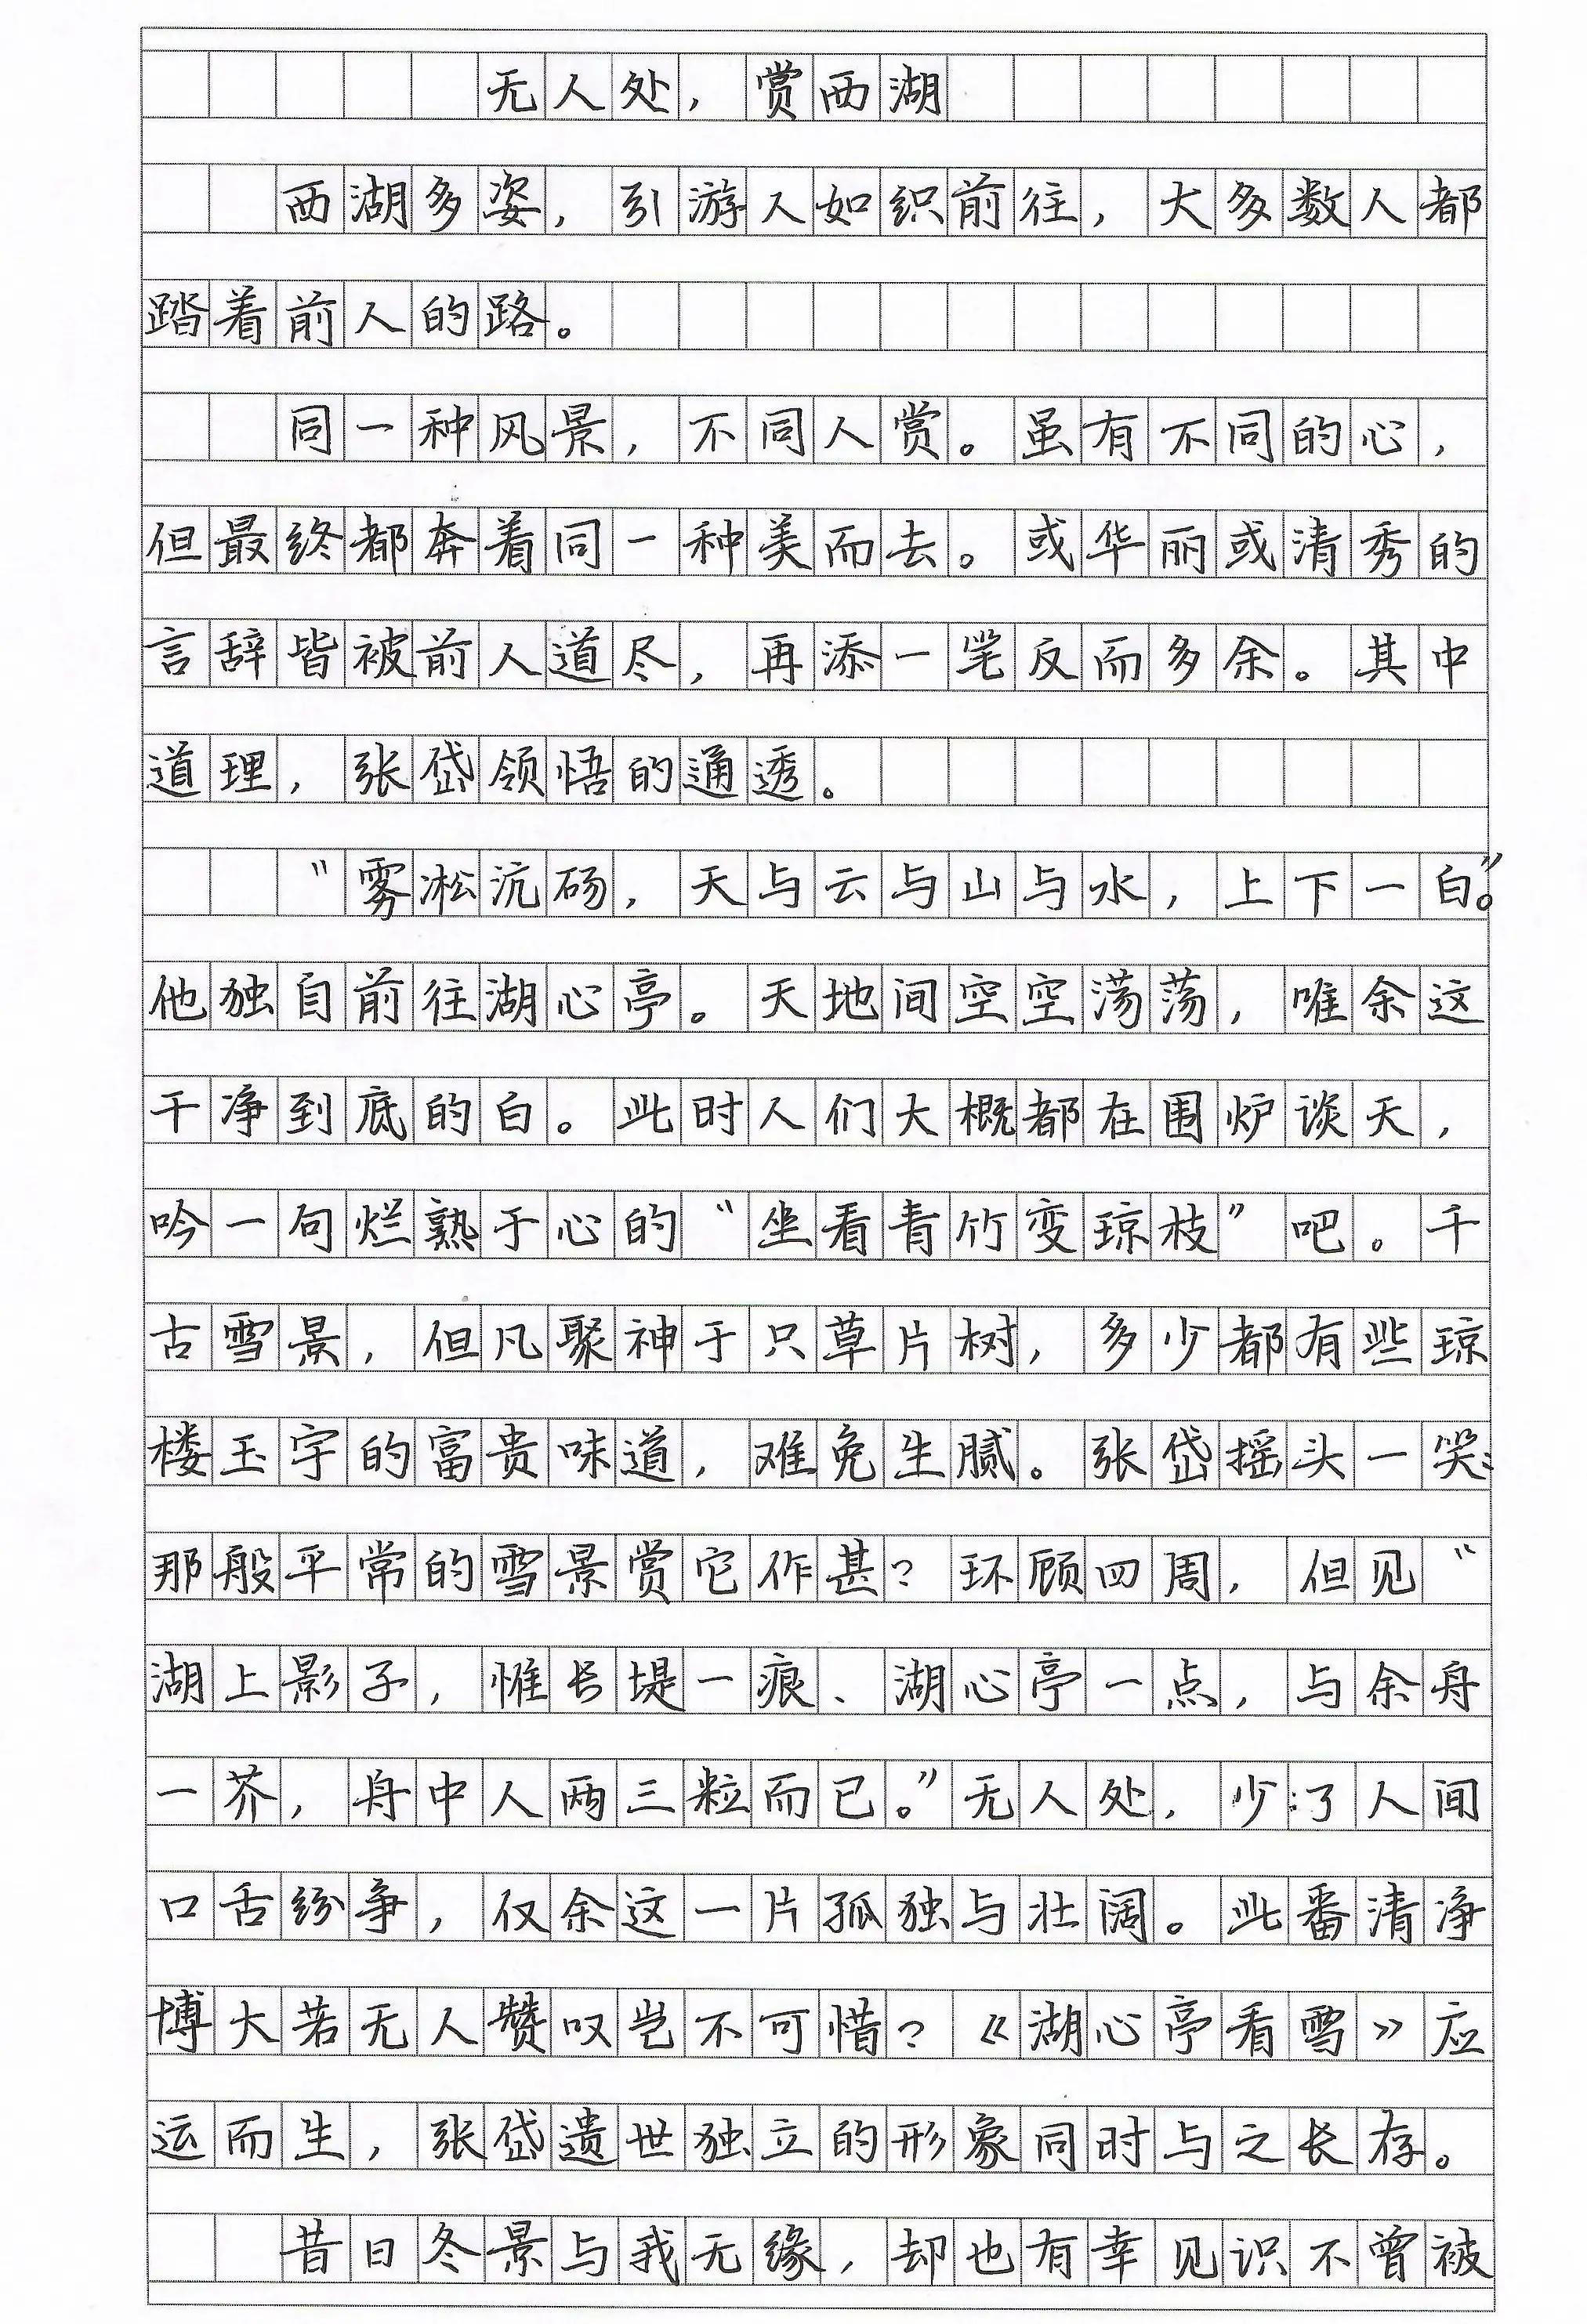 无人处，赏西湖
西湖多姿，引游人如织前往，大多数人都
踏着前人的路。
同一种风景，不同人赏。虽有不同的心，
但最终都奔着同一种美而去。或华丽或清秀的
言辞皆被前人道尽，再添一笔反而多余。其中
道理，张岱领悟的通透。
“雾凇沆砀，天与云与山与水，上下一白”。
他独自前往湖心亭。天地间空空荡荡，唯余这
干净到底的白。此时人们大概都在围炉谈天，
吟一句烂熟于心的“坐看青竹变琼枝”吧。千
古雪景，但凡聚神于只草片树，多少都有些琼
楼玉宇的富贵味道，难免生腻。张岱摇头一笑：
那般平常的雪景赏它作甚？环顾四周，但见“
湖上影子，惟长堤一痕、湖心亭一点，与余舟
一芥，舟中人两三粒而已。”无人处，少了人间
口舌纷争，仅余这一片孤独与壮阔。此番清净
博大若无人赞叹岂不可惜？《湖心亭看雪》应
运而生，张岱遗世独立的形象同时与之长存。
昔日冬景与我无缘，却也有幸见识不曾被